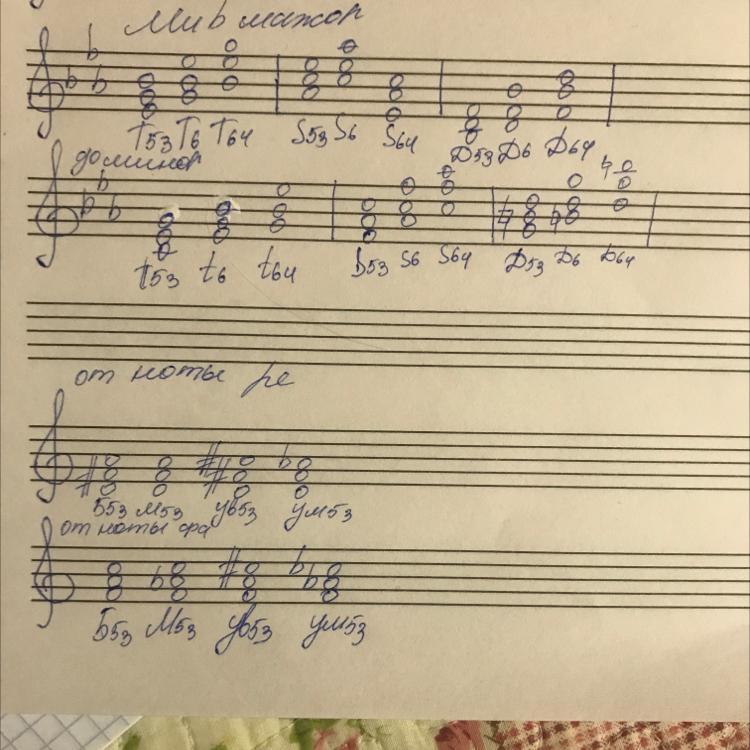 Миb мажор
T53 T6 T64 S53 S6 S64 D53 D6 D64
до минор
t53 t6 t64 s53 s6 s64 D53 D6 D64
от ноты ре
Б53 М53 Ув53 Ум53
от ноты фа
Б53 М53 Ув53 Ум53